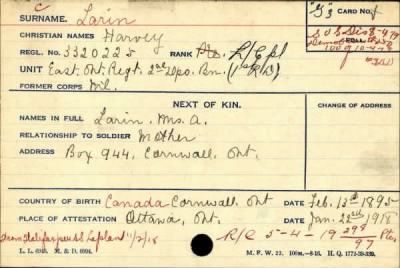 C "G's" CARD NO.
SURNAME. Larin
CHRISTIAN NAMES Harvey
REGL. NO. 3320225 RANK Pte. L/Cpl
UNIT East. Ont. Regt. 2nd Depo. Bn.
FORMER CORPS Nil.
S O S Dis 8-4-19
NEXT OF KIN.
CHANGE OF ADDRESS
NAMES IN FULL Larin, Mrs. A.
RELATIONSHIP TO SOLDIER Mother
ADDRESS Box 944, Cornwall, Ont.
COUNTRY OF BIRTH Canada Cornwall, Ont DATE Feb. 12th 1895
PLACE OF ATTESTATION Ottawa, Ont. DATE Jan. 22nd 1918
From Halifax per SS Lapland 11/2/18 R/C 5-4-19 299/97 Ptes.
L. L. 6949. M. & D. 6994. M. F. W. 22. 100M.—8-16. H. Q. 1772-39-339.